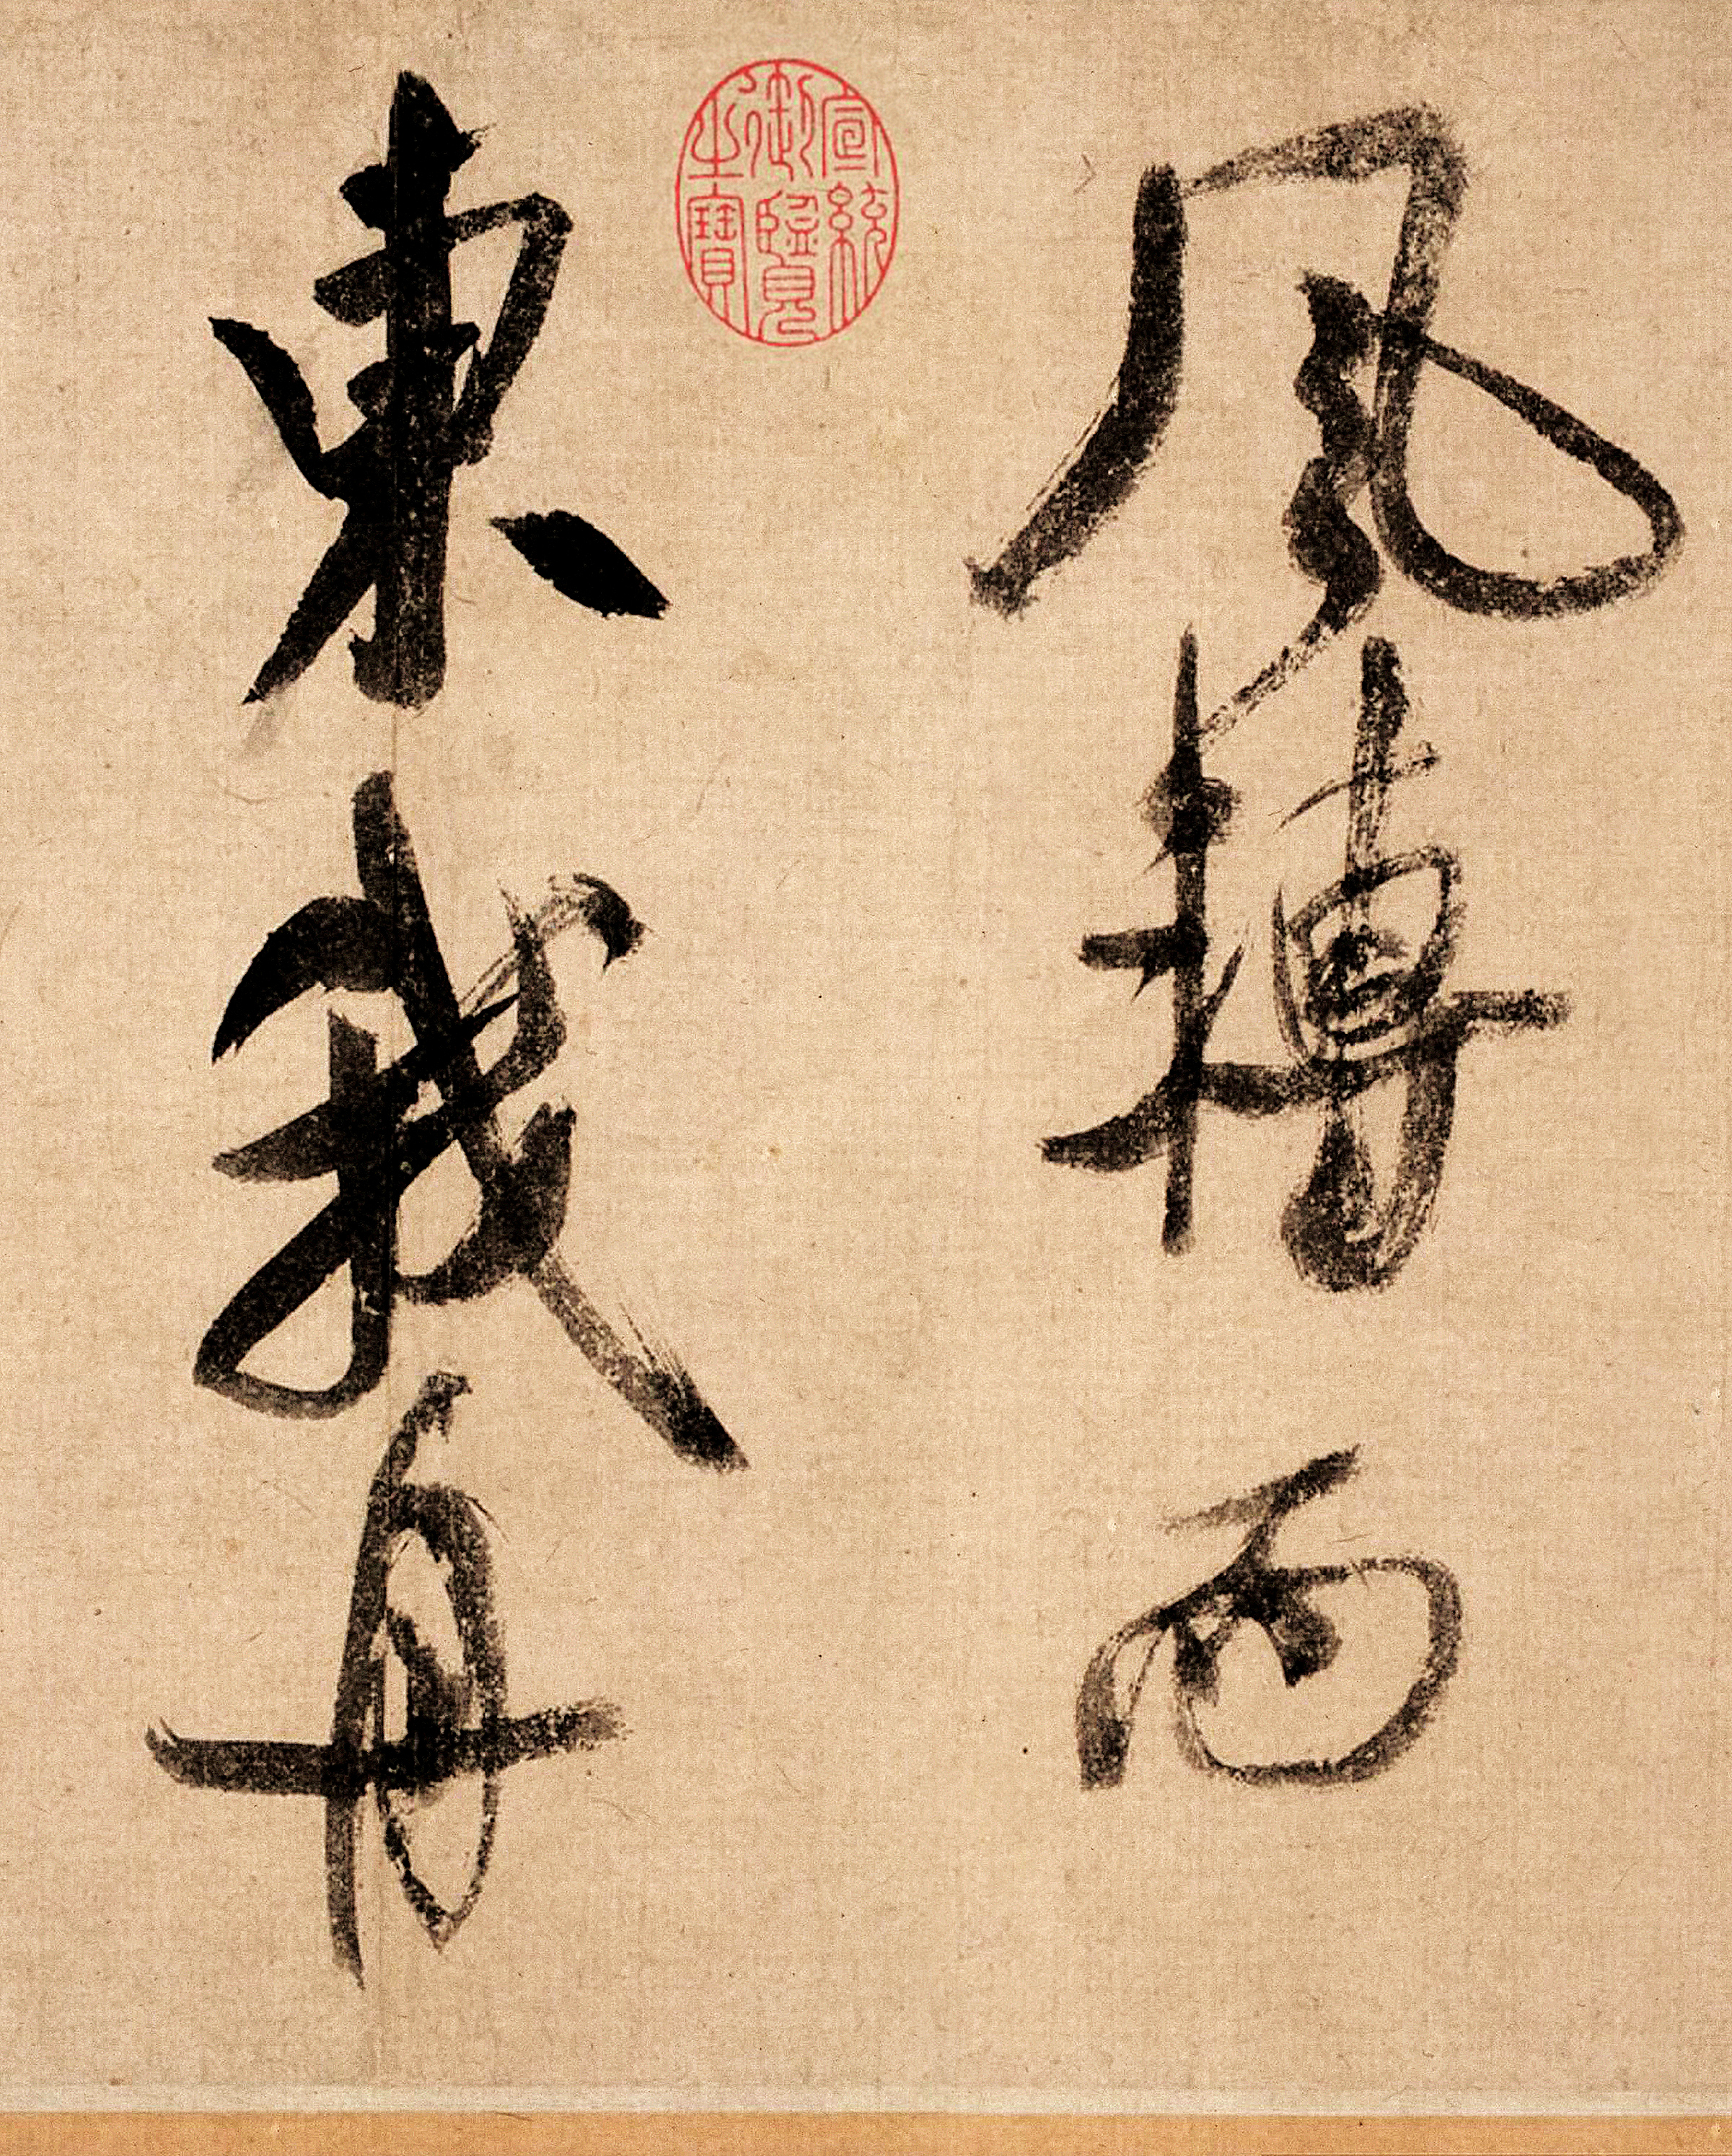 風轉而
東我舟
宣統
御覽
之寶